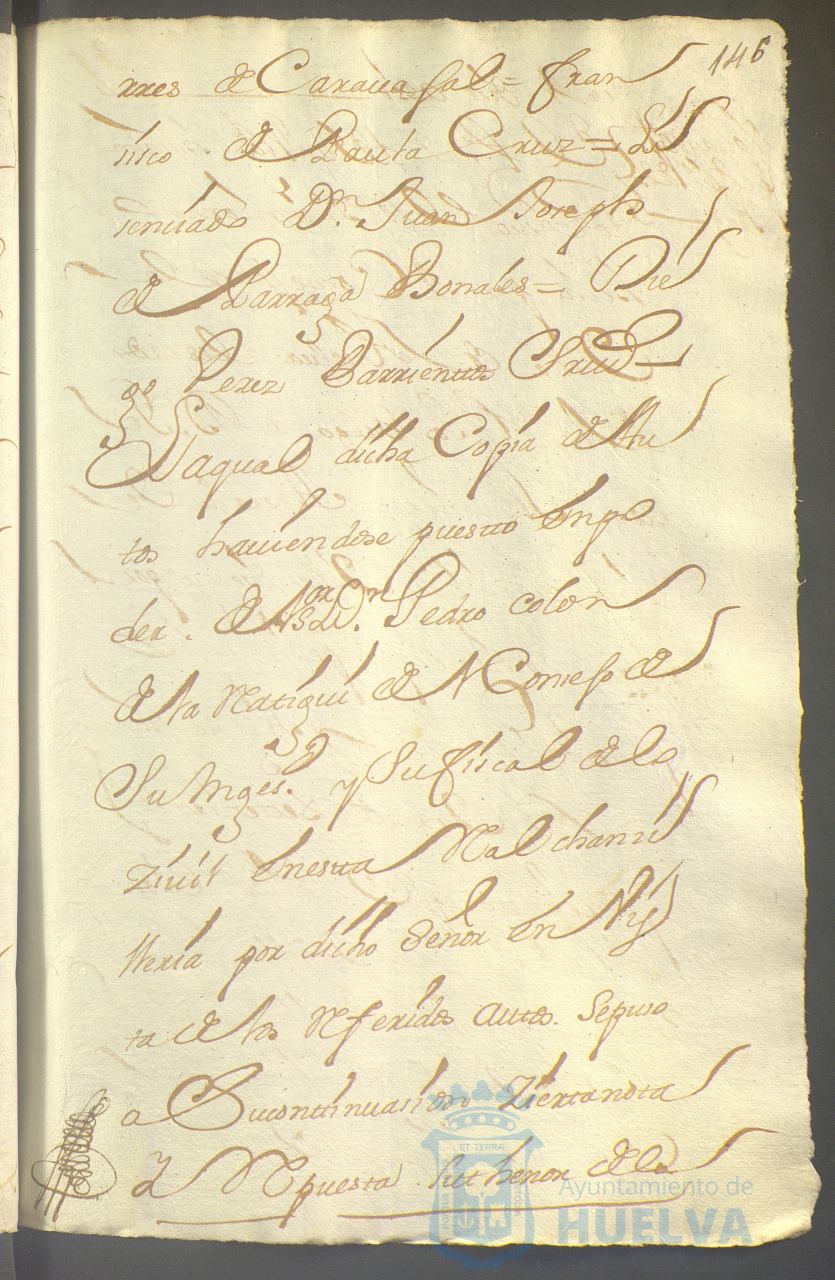 146
rres de Carauajal = Fran
sisco de Paula Cruz = Li
senciado Dn. Juan Joseph
de Parraga Bonales = Die
go Perez Barrientos
Laqual dicha Copia de Au
tos hauiendose puesto en po
der. del Sor. Dn. Pedro colon
de la Rategui del Consejo de
Su Mages. y Su fiscal de lo
Ziuil en esta Real chansi
lleria por dicho Señor en Vis
ta de los Referidos autos. Sepuso
a Sucontinuasion Ziertanota
y Repuesta Suthenor dela
ET TERRÆ
Ayuntamiento de
HUELVA